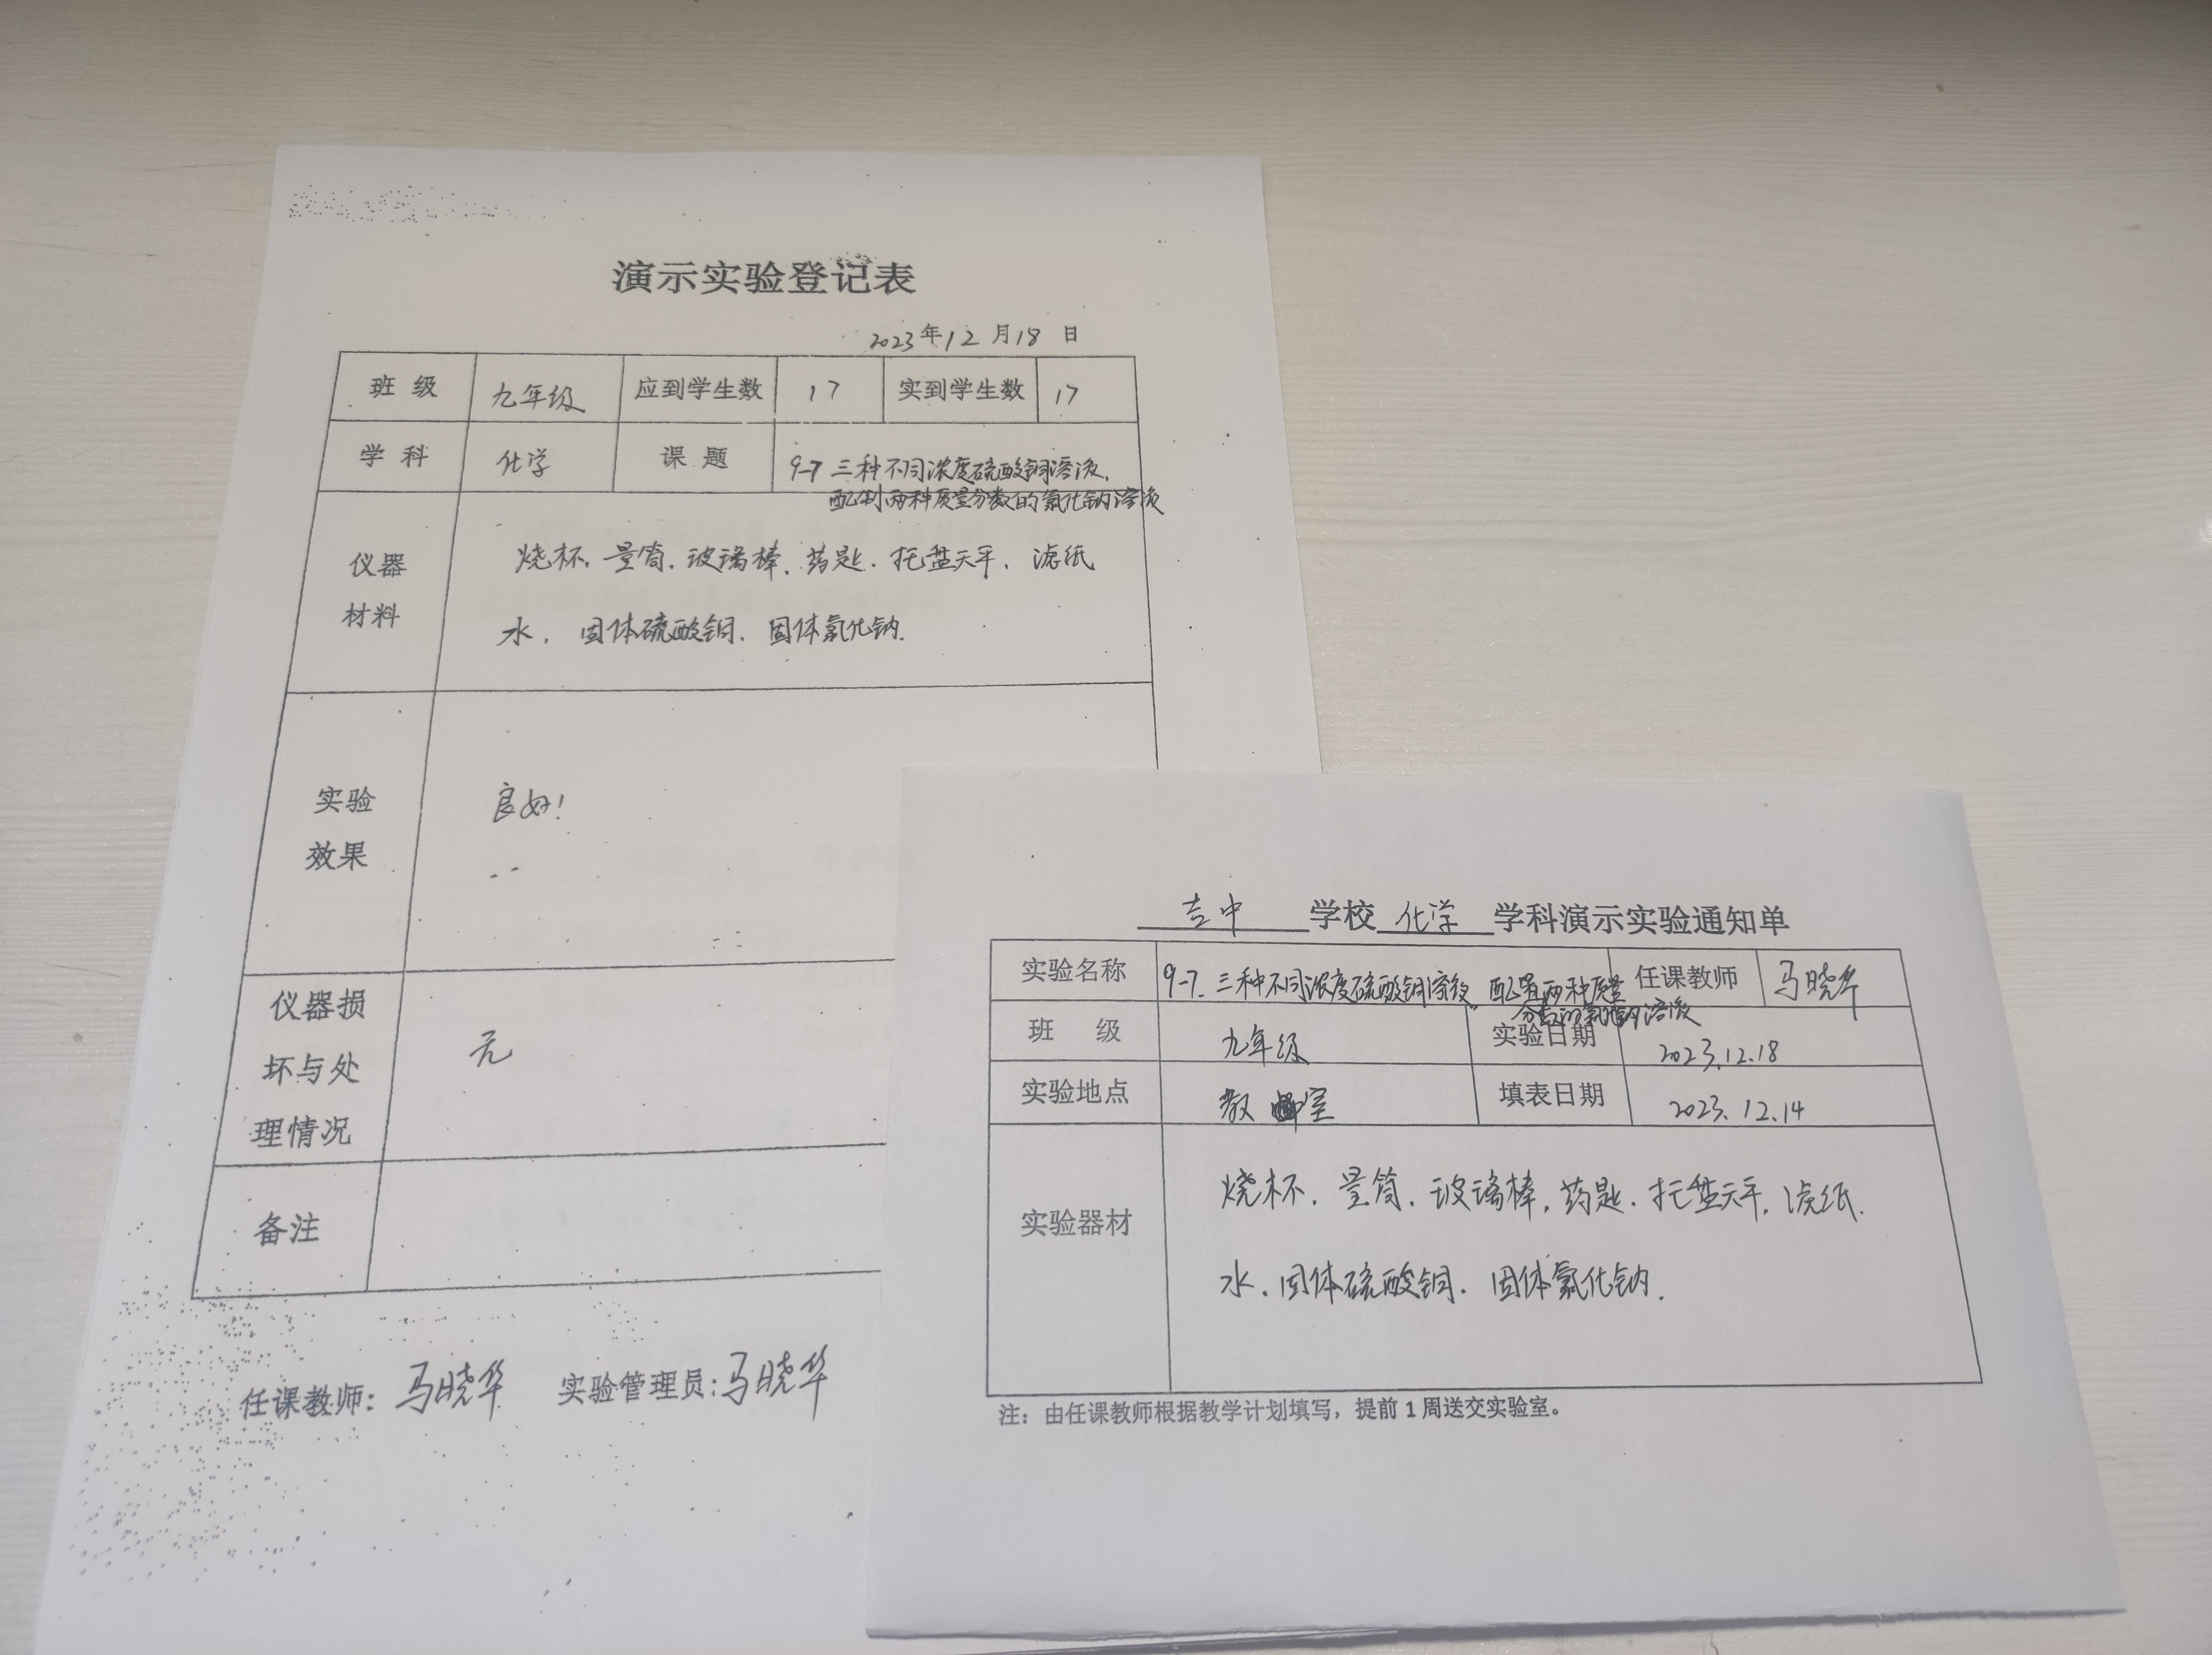 演示实验登记表
2023年12月18日
班级 九年级 应到学生数 17 实到学生数 17
学科 化学 课题 9-7 三种不同浓度硫酸铜溶液.
配制两种质量分数的氯化钠溶液
仪器
材料
烧杯. 量筒. 玻璃棒. 药匙. 托盘天平. 滤纸
水. 固体硫酸铜. 固体氯化钠.
实验
效果
良好!
仪器损
坏与处
理情况
无
备注
任课教师: 马晓华 实验管理员: 马晓华
吉中 学校 化学 学科演示实验通知单
实验名称 9-7. 三种不同浓度硫酸铜溶液 配置两种质量 任课教师 马晓华
分数的氯化钠溶液
班级 九年级 实验日期 2023.12.18
实验地点 教室 填表日期 2023.12.14
实验器材
烧杯. 量筒. 玻璃棒. 药匙. 托盘天平. 滤纸.
水. 固体硫酸铜. 固体氯化钠.
注：由任课教师根据教学计划填写，提前1周送交实验室。